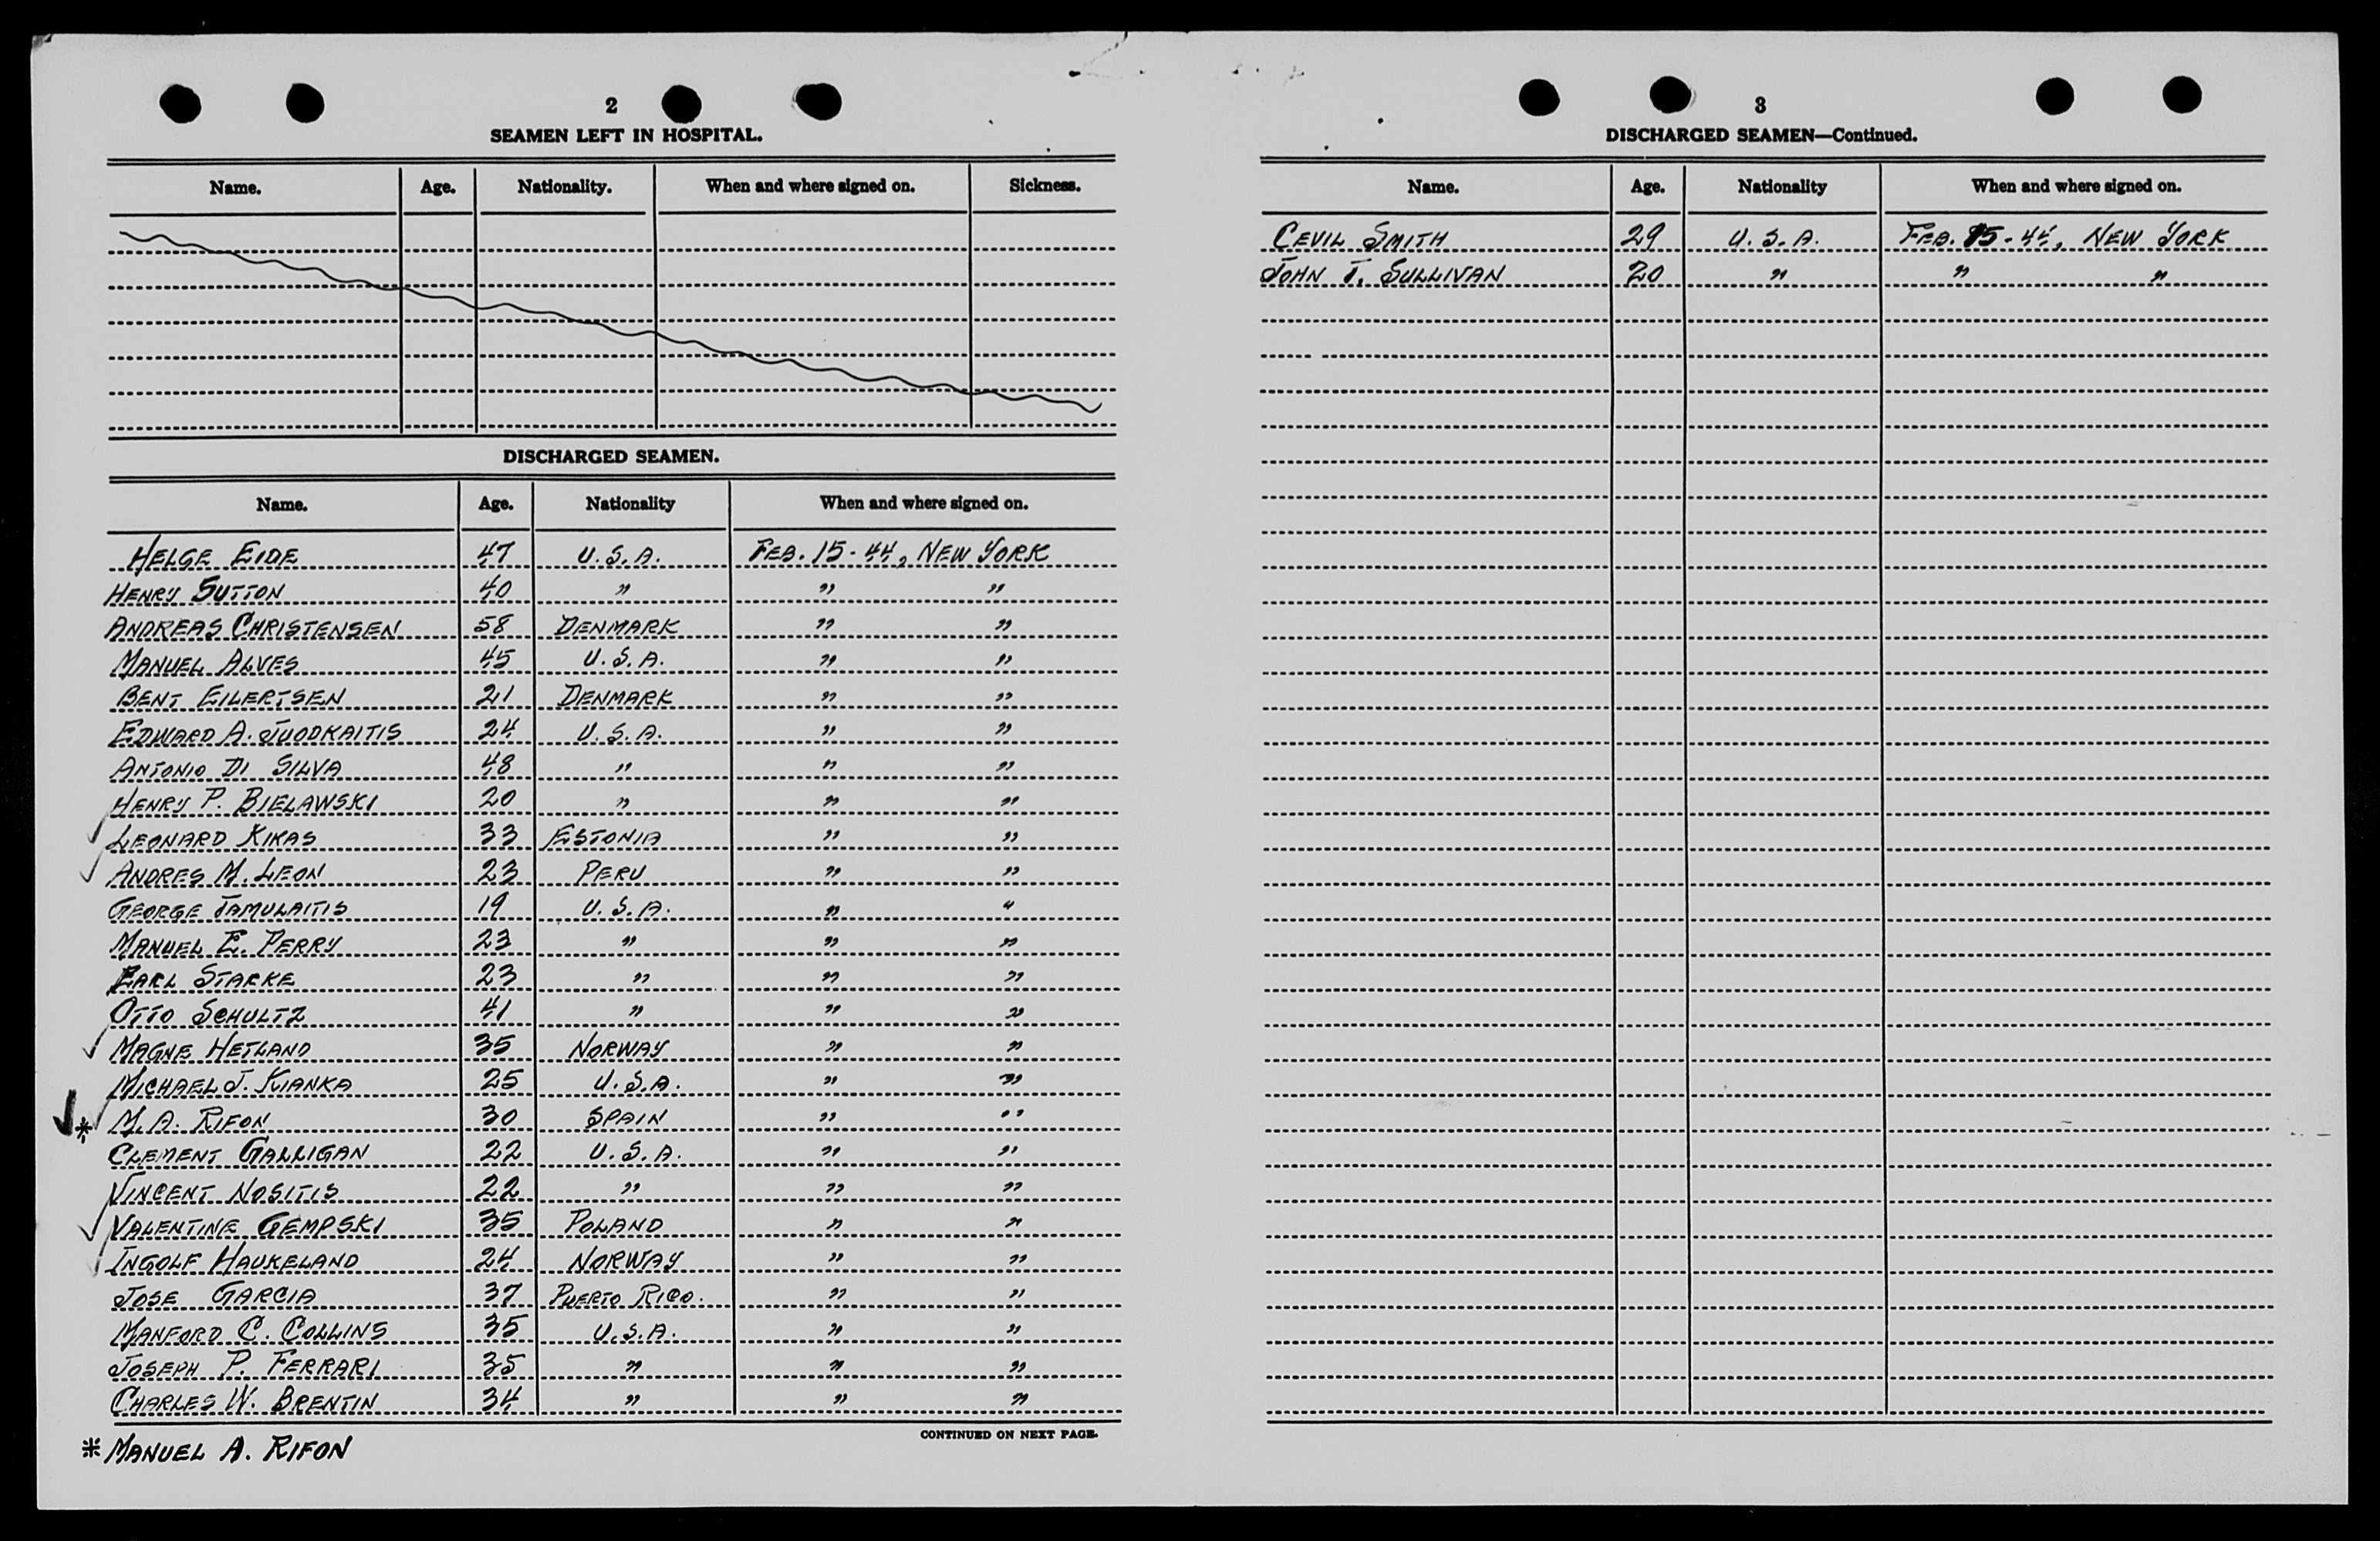 2
SEAMEN LEFT IN HOSPITAL.
Name. Age. Nationality. When and where signed on. Sickness.
DISCHARGED SEAMEN.
Name. Age. Nationality When and where signed on.
HELGE EIDE 47 U.S.A. FEB. 15-44, NEW YORK
HENRY SUTTON 40 " " "
ANDREAS CHRISTENSEN 58 DENMARK " "
MANUEL ALVES 45 U.S.A. " "
BENT EILERTSEN 21 DENMARK " "
EDWARD A. JUODKAITIS 24 U.S.A. " "
ANTONIO DI SILVA 48 " " "
HENRY P. BIELAWSKI 20 " " "
✓ LEONARD KIKAS 33 ESTONIA " "
✓ ANDRES M. LEON 23 PERU " "
GEORGE TAMULAITIS 19 U.S.A. " "
MANUEL E. PERRY 23 " " "
EARL STARKE 23 " " "
OTTO SCHULTZ 41 " " "
✓ MAGNE HETLAND 35 NORWAY " "
MICHAEL J. KIANKA 25 U.S.A. " "
* ✓ M.A. RIFON 30 SPAIN " "
CLEMENT GALLIGAN 22 U.S.A. " "
VINCENT NOSITIS 22 " " "
✓ VALENTINE GEMPSKI 35 POLAND " "
✓ INGOLF HAUKELAND 24 NORWAY " "
JOSE GARCIA 37 PUERTO RICO. " "
MANFORD C. COLLINS 35 U.S.A. " "
JOSEPH P. FERRARI 35 " " "
CHARLES W. BRENTIN 34 " " "
CONTINUED ON NEXT PAGE.
* MANUEL A. RIFON
3
DISCHARGED SEAMEN—Continued.
Name. Age. Nationality When and where signed on.
CEVIL SMITH 29 U.S.A. FEB. 15-44, NEW YORK
JOHN T. SULLIVAN 20 " " "